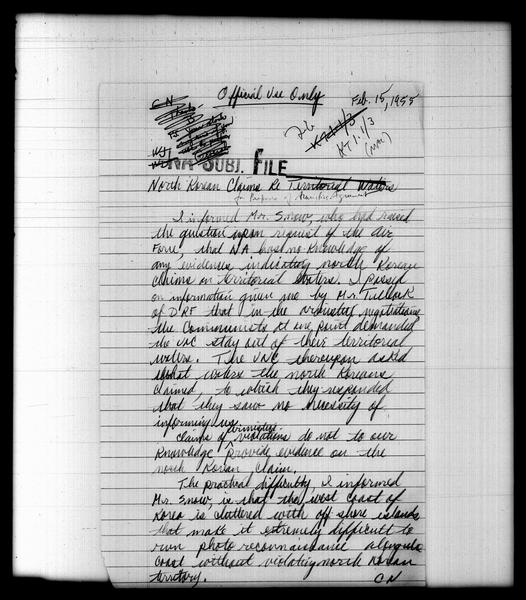 Official Use Only
Feb. 15, 1955
CN
KT 1.1/3
(MAC)
NA SUBJ. FILE
North Korean Claims Re Territorial Waters
for Purposes of Armistice Agreement
I informed Mr. Snow, who had raised
the question upon request of the Air
Force, that NA has no knowledge of
any evidence indicating north Korean
claims on territorial waters. I passed
on information given me by Mr. Tullock
of DRF that in the armistice negotiations
the Communists at one point demanded
the UNC stay out of their territorial
waters. The UNC thereupon asked
what waters the north Koreans
claimed, to which they responded
that they saw no necessity of
informing us.
Claims of armistice violations do not to our
knowledge provide evidence on the
north Korean claim.
The practical difficulty, I informed
Mr. Snow, is that the west coast of
Korea is cluttered with off shore islands
that make it extremely difficult to
run photo reconnaissance along
coast without violating north Korean
territory.
CN